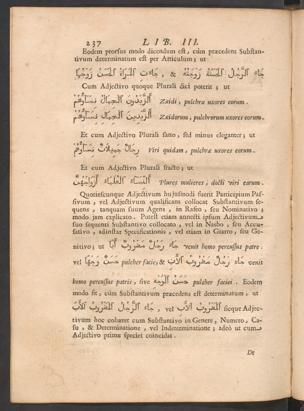 237 LIB. III.
Eodem prorsus modo dicendum est, cùm præcedens Substan-
tivum determinatum est per Articulum; ut
جَاءَ الرَّجُلُ الحَسَنُ وَزَوْجَتُهُ &, جَاءَتِ المَرْأَةُ الحَسَنُ زَوْجُهَا
Cum Adjectivo quoque Plurali dici poterit; ut
الزَّيْدُونَ الْجِمَالُ نِسَاؤُهُمْ Zaidi, pulchræ uxores eorum.
الزَّيْدِينَ الْجِمَالِ نِسَاؤُهُمْ Zaidorum, pulchrarum uxores eorum.
Et cum Adjectivo Plurali sano, sed minus eleganter; ut
رِجَالٌ جَمِيلَاتٌ نِسَاؤُهُمْ Viri quidam, pulchræ uxores eorum.
Et cum Adjectivo Plurali fracto; ut
النِّسَاءُ العُلَمَاءُ أَزْوَاجُهُنَّ Plures mulieres, docti viri earum.
Quotiescunque Adjectivum hujusmodi fuerit Participium Pas-
sivum, vel Adjectivum qualificans collocat Substantivum se-
quens, tanquam suum Agens, in Rafso, seu Nominativo;
modo jam explicato. Potest etiam annecti ipsum Adjectivum
suo sequenti Substantivo collocato, vel in Nasbo, seu Accu-
sativo, adinstar Specificationis, vel etiam in Giarro, seu Ge-
nitivo; ut جَاءَ رَجُلٌ مَضْرُوبٌ أَبًا venit homo percussus patre.
vel جَاءَ رَجُلٌ مَضْرُوبُ الأَبِ & pulcher facie; حَسَنٌ وَجْهًا venit
homo percussus patris, sive حَسَنُ الْوَجْهِ pulcher faciei. Eodem
modo fit, cùm Substantivum præcedens est determinatum, ut
جَاءَ الرَّجُلُ المَضْرُوبُ الأَبَ, vel المَضْرُوبُ الأَبِ sicque Adjec-
tivum hoc cohæret cum Substantivo in Genere, Numero, Ca-
su, & Determinatione, vel Indeterminatione; adeò ut cum
Adjectivo primæ speciei coincidat.
De